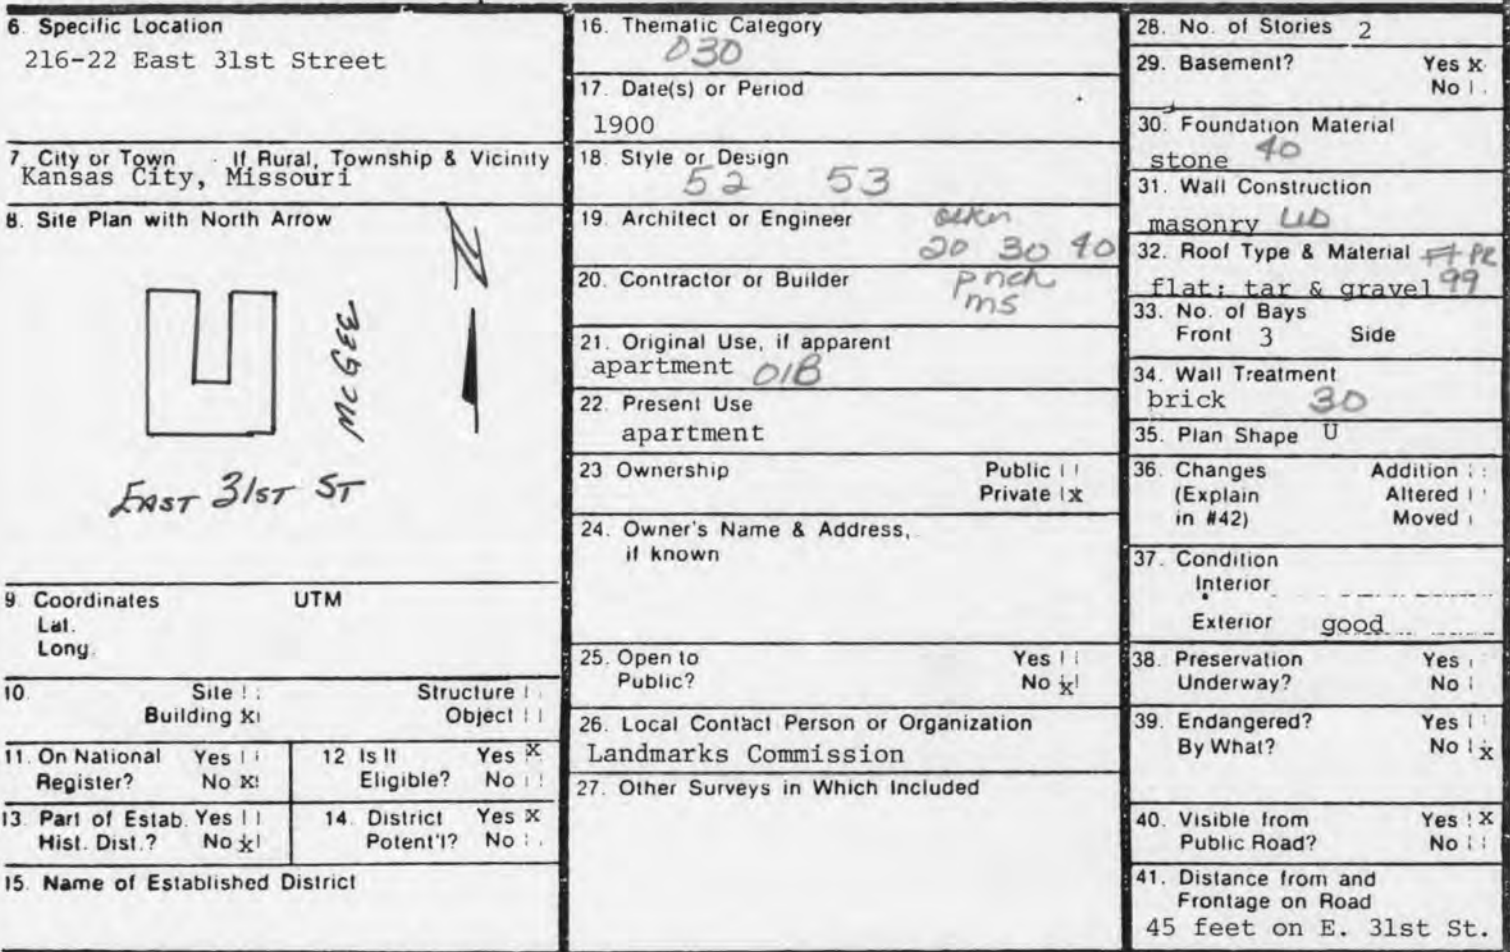 6. Specific Location
216-22 East 31st Street
7. City or Town If Rural, Township & Vicinity
Kansas City, Missouri
8. Site Plan with North Arrow
N
McGEE
EAST 31ST ST
9. Coordinates UTM
Lat.
Long.
10. Site Structure
Building X Object
11. On National Yes
Register? No X
12 Is It Yes X
Eligible? No
13. Part of Estab. Yes
Hist. Dist.? No x
14. District Yes X
Potent'l? No
15. Name of Established District
16. Thematic Category
030
17. Date(s) or Period
1900
18. Style or Design
52 53
19. Architect or Engineer
20 30 40
20. Contractor or Builder
pnch
ms
21. Original Use, if apparent
apartment 01B
22. Present Use
apartment
23 Ownership Public
Private x
24. Owner's Name & Address,
if known
25. Open to Yes
Public? No x
26. Local Contact Person or Organization
Landmarks Commission
27. Other Surveys in Which Included
28. No. of Stories 2
29. Basement? Yes x
No
30. Foundation Material
stone 40
31. Wall Construction
masonry UD
32. Roof Type & Material
flat; tar & gravel 99
33. No. of Bays
Front 3 Side
34. Wall Treatment
brick 30
35. Plan Shape U
36. Changes Addition
(Explain Altered
in #42) Moved
37. Condition
Interior
Exterior good
38. Preservation Yes
Underway? No
39. Endangered? Yes
By What? No x
40. Visible from Yes X
Public Road? No
41. Distance from and
Frontage on Road
45 feet on E. 31st St.